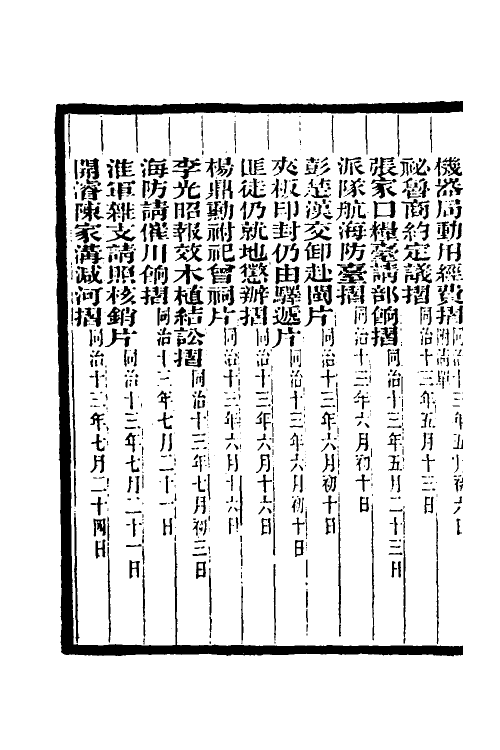 機器局動用經費摺 附清單 同治十三年五月初六日
祕魯商約定議摺 同治十三年五月十三日
張家口糧臺請部餉摺 同治十三年五月二十三日
派隊航海防臺摺 同治十三年六月初十日
彭楚漢交卸赴閩片 同治十三年六月初十日
夾板印封仍由驛遞片 同治十三年六月初十日
匪徒仍就地懲辦摺 同治十三年六月十六日
楊鼎勳祔祀曾祠片 同治十三年六月十六日
李光昭報效木植結訟摺 同治十三年七月初三日
海防請催川餉摺 同治十三年七月二十一日
淮軍雜支請照核銷片 同治十三年七月二十一日
開濬陳家溝減河摺 同治十三年七月二十四日